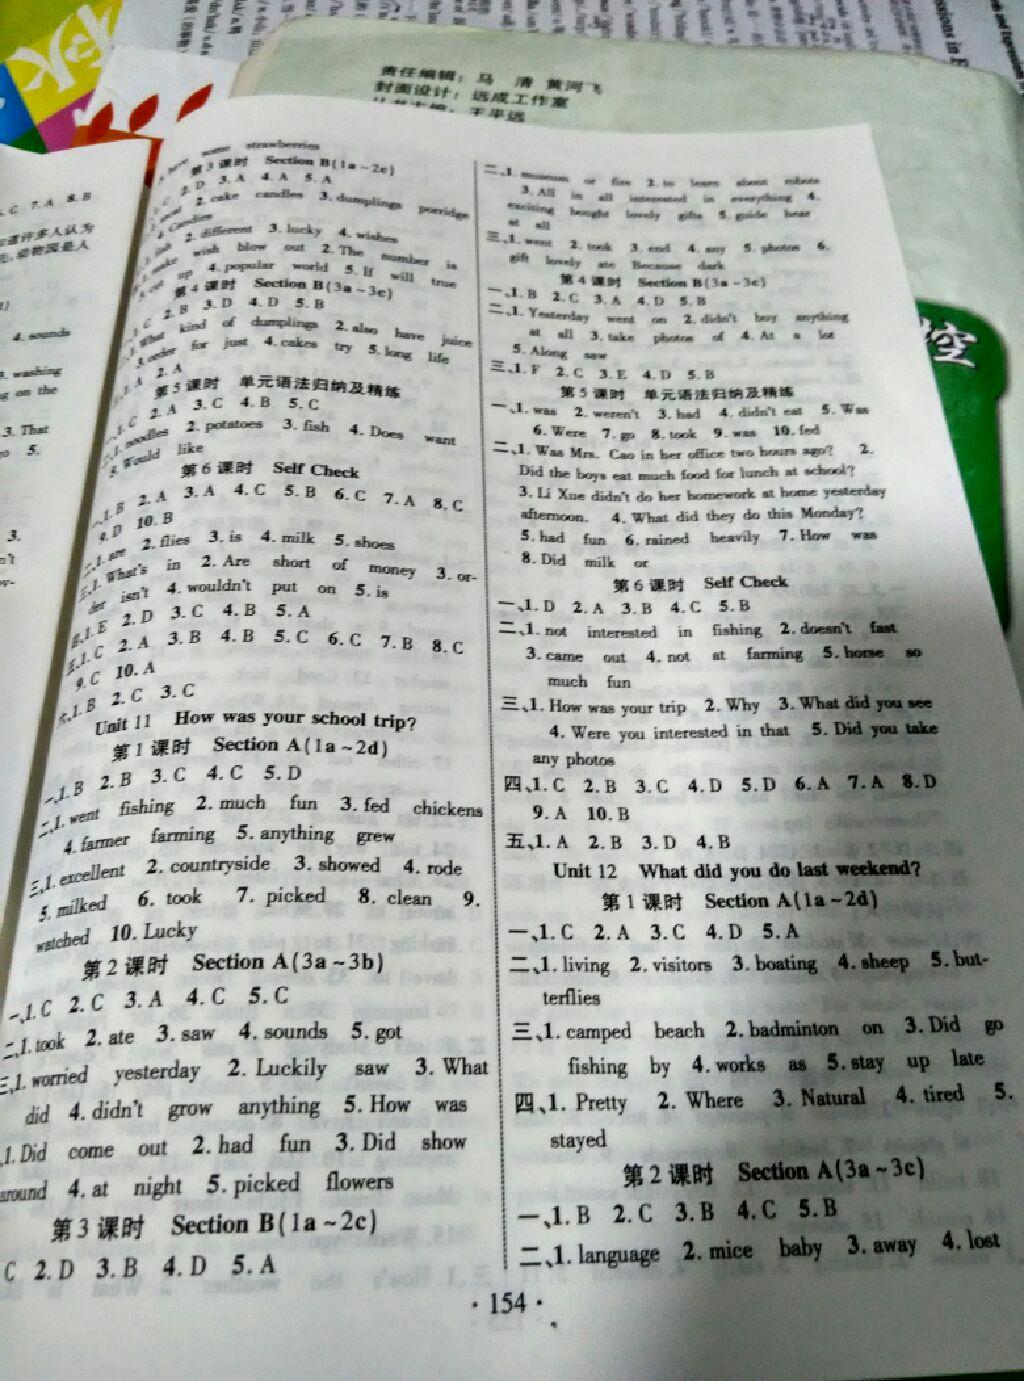 责任编辑：马 清 黄河飞
封面设计：远成工作室
some strawberries
第3课时 Section B(1a~2c)
2. D 3. A 4. A 5. A
2. cake candles 3. dumplings porridge
4. Candies
2. different 3. lucky 4. wishes
wish blow out 2. The number is
4. popular world 5. If will true
第4课时 Section B(3a~3c)
C 2. B 3. D 4. D 5. B
What kind of dumplings 2. also have juice
3. order for just 4. cakes try 5. long life
A 2. A
第5课时 单元语法归纳及精练
一、1. C 2. A 3. C 4. B 5. C
noodles 2. potatoes 3. fish 4. Does want
5. Would like
第6课时 Self Check
一、1. B 2. A 3. A 4. C 5. B 6. C 7. A 8. C
9. D 10. B
二、1. are 2. flies 3. is 4. milk 5. shoes
三、1. What's in 2. Are short of money 3. or-
der isn't 4. wouldn't put on 5. is
四、1. E 2. D 3. C 4. B 5. A
五、1. C 2. A 3. B 4. B 5. C 6. C 7. B 8. C
9. C 10. A
六、1. B 2. C 3. C
Unit 11 How was your school trip?
第1课时 Section A(1a~2d)
一、1. B 2. B 3. C 4. C 5. D
二、1. went fishing 2. much fun 3. fed chickens
4. farmer farming 5. anything grew
三、1. excellent 2. countryside 3. showed 4. rode
5. milked 6. took 7. picked 8. clean 9.
watched 10. Lucky
第2课时 Section A(3a~3b)
一、1. C 2. C 3. A 4. C 5. C
二、1. took 2. ate 3. saw 4. sounds 5. got
三、1. worried yesterday 2. Luckily saw 3. What
did 4. didn't grow anything 5. How was
1. Did come out 2. had fun 3. Did show
around 4. at night 5. picked flowers
第3课时 Section B(1a~2c)
C 2. D 3. B 4. D 5. A
二、1. museum or fire 2. to learn about robots
3. All in all interested in everything 4.
exciting bought lovely gifts 5. guide hear
at all
三、1. went 2. took 3. end 4. any 5. photos 6.
gift lovely ate Because dark
第4课时 Section B(3a~3c)
一、1. B 2. C 3. A 4. D 5. B
二、1. Yesterday went on 2. didn't buy anything
at all 3. take photos of 4. At a lot
5. Along saw
三、1. F 2. C 3. E 4. D 5. B
第5课时 单元语法归纳及精练
一、1. was 2. weren't 3. had 4. didn't eat 5. Was
6. Were 7. go 8. took 9. was 10. fed
二、1. Was Mrs. Cao in her office two hours ago? 2.
Did the boys eat much food for lunch at school?
3. Li Xue didn't do her homework at home yesterday
afternoon. 4. What did they do this Monday?
5. had fun 6. rained heavily 7. How was
8. Did milk or
第6课时 Self Check
一、1. D 2. A 3. B 4. C 5. B
二、1. not interested in fishing 2. doesn't fast
3. came out 4. not at farming 5. home so
much fun
三、1. How was your trip 2. Why 3. What did you see
4. Were you interested in that 5. Did you take
any photos
四、1. C 2. B 3. C 4. D 5. D 6. A 7. A 8. D
9. A 10. B
五、1. A 2. B 3. D 4. B
Unit 12 What did you do last weekend?
第1课时 Section A(1a~2d)
一、1. C 2. A 3. C 4. D 5. A
二、1. living 2. visitors 3. boating 4. sheep 5. but-
terflies
三、1. camped beach 2. badminton on 3. Did go
fishing by 4. works as 5. stay up late
四、1. Pretty 2. Where 3. Natural 4. tired 5.
stayed
第2课时 Section A(3a~3c)
一、1. B 2. C 3. B 4. C 5. B
二、1. language 2. mice baby 3. away 4. lost
· 154 ·